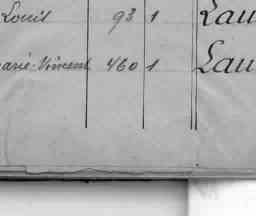 Louis 93 1 Lau
arie-Vincent 460 1 Lau